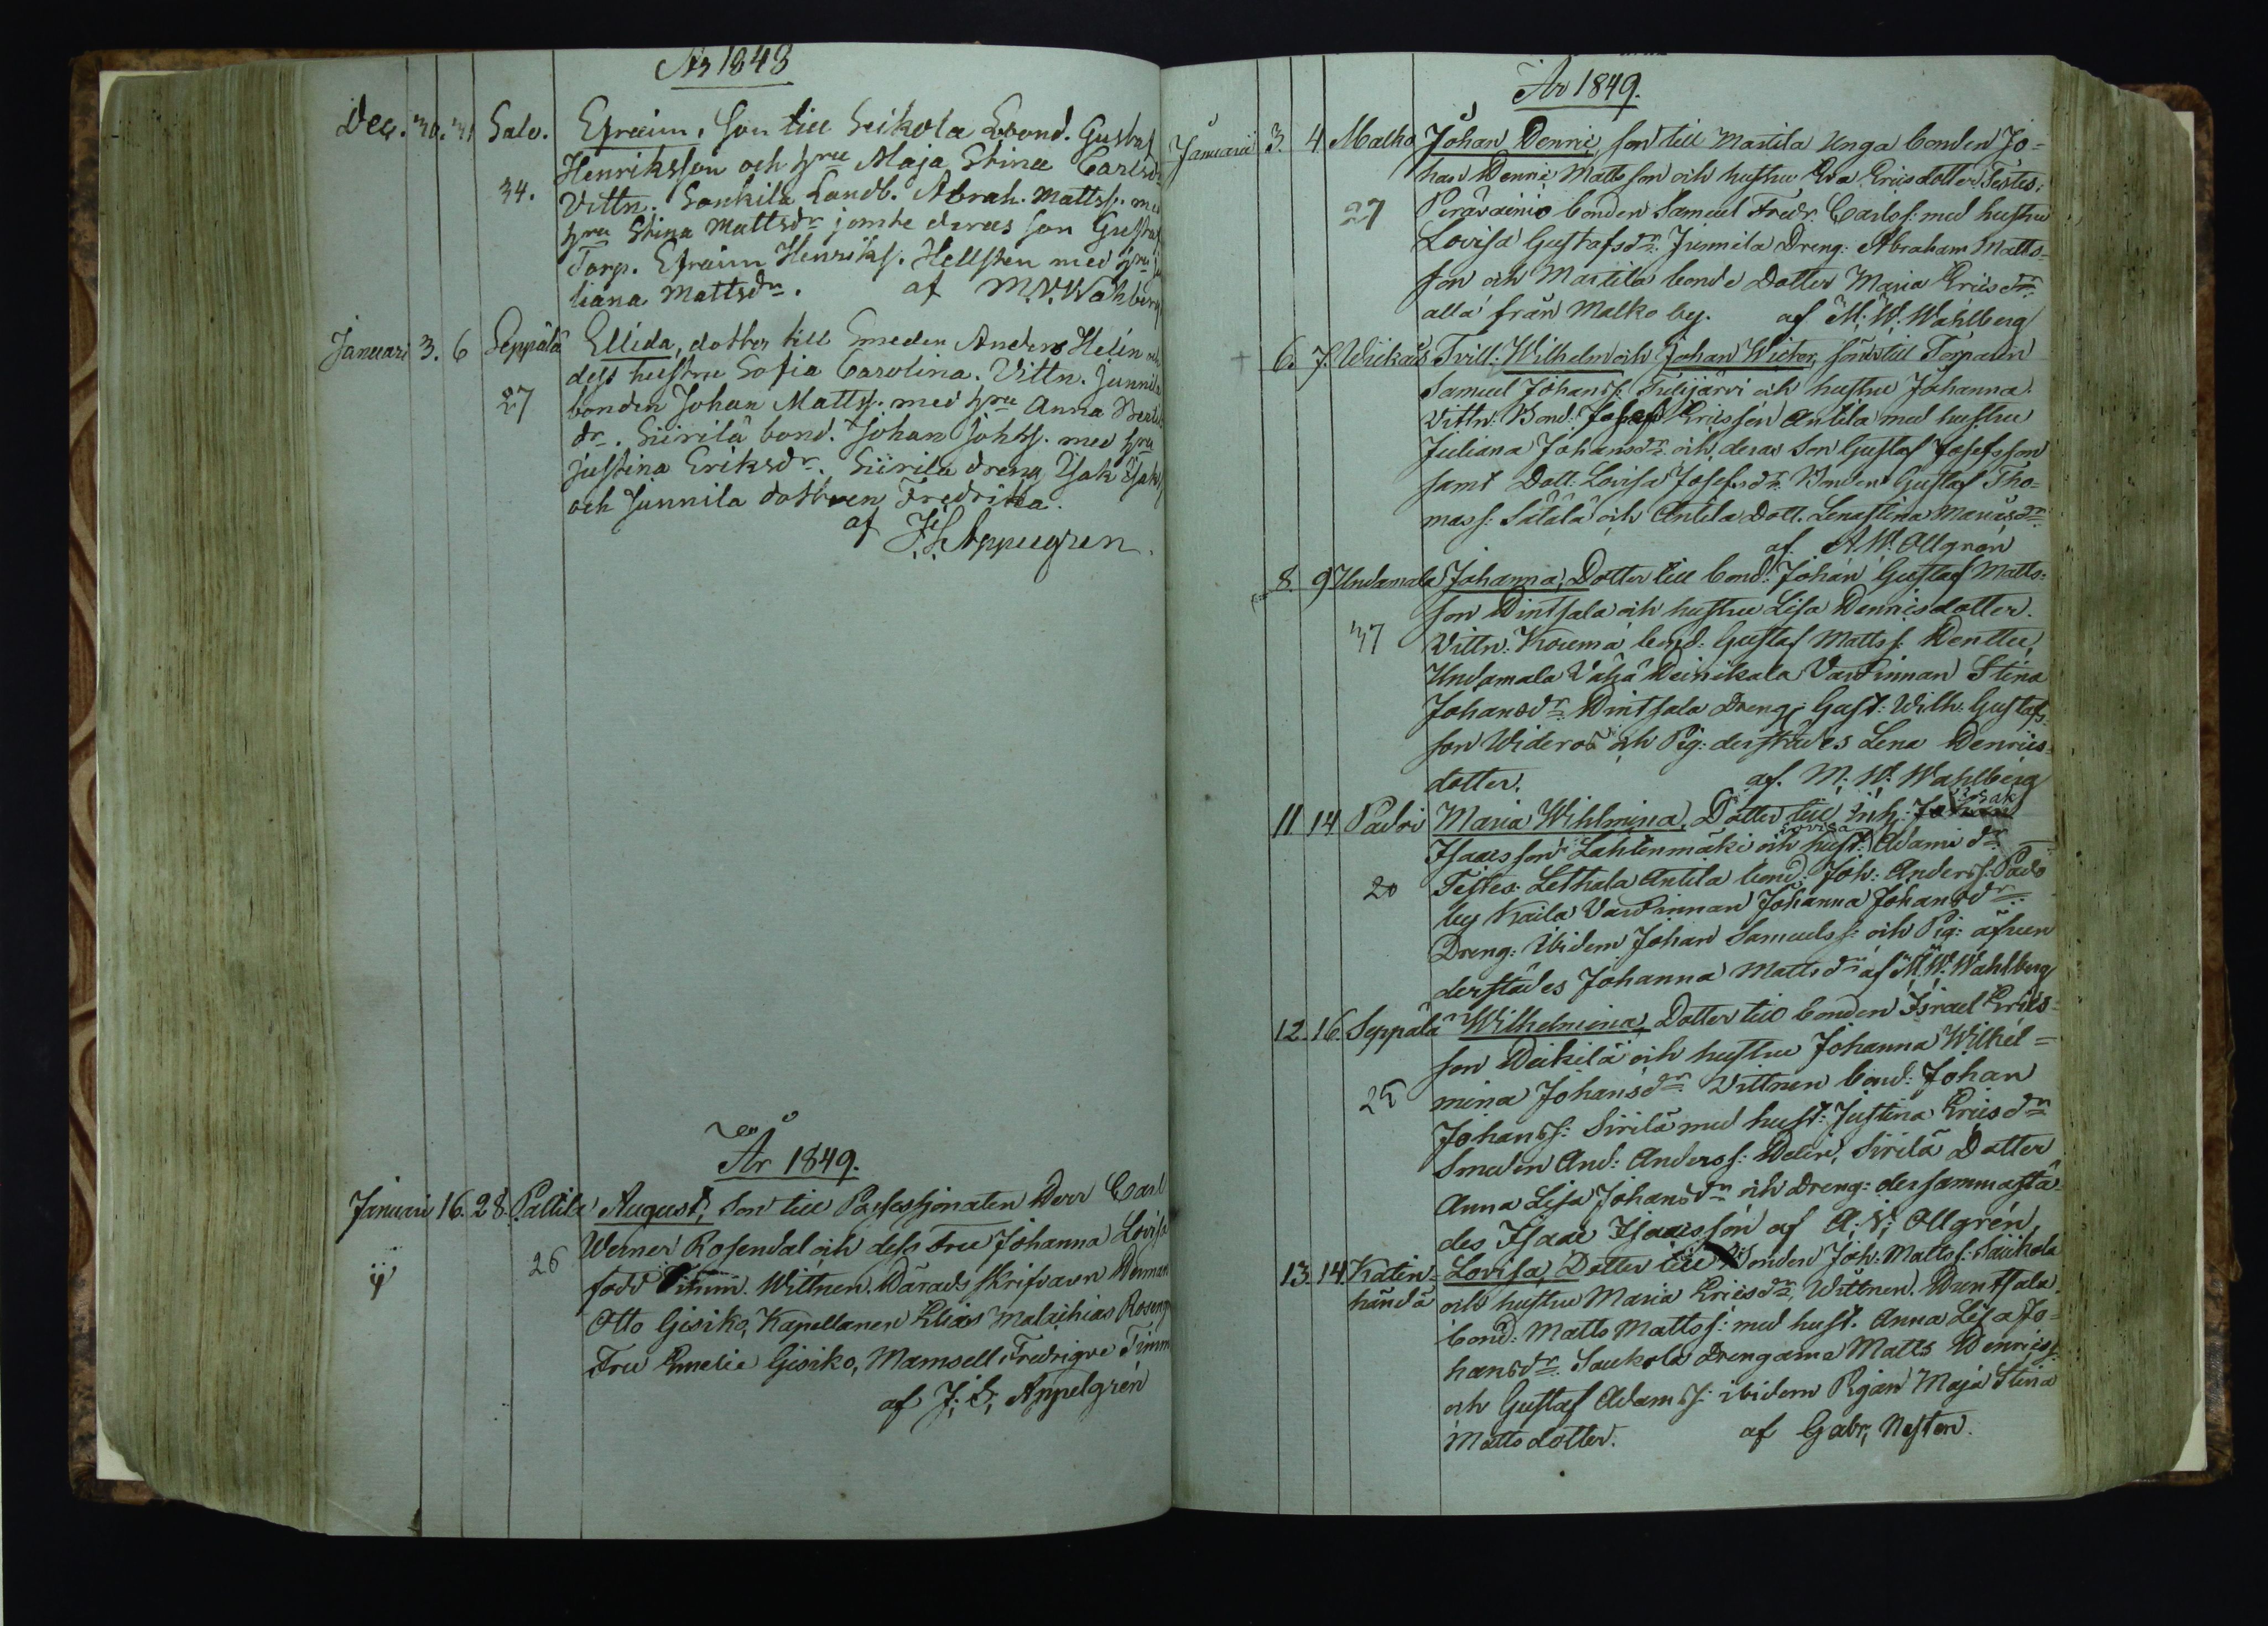 År 1848
Dec. 30. 31 Salo. Efraim, son till Seikola Lbond. Gustaf
Henriksson och hru Maja Stina Carlsdr
34. Vittn. Sonkila Landb. Abrah. Mattss. med
hru Stina Mattsdr jemte deras son Gustaf
Torp. Efraim Henrikss. Hellsten med hru
liana Mattsdr. af M.W. Wahlberg
Januari 3. 6 Seppälä Ellida, dotter till Smeden Anders Helin och
dess hustru Sofia Carolina. Vittn. Junnila
27 bonden Johan Mattss. med hru Anna
dr. Siirilä bond. Johan Johss. med hru
Justina Eriksdr. Siirilä dreng Isak Isakss
och Junnila dottren Fredrika.
af J.S. Appelgren.
År 1849.
Januari 16. 28. Pattila August, Son till Possessjonaten Herr Carl
Werner Rosendal och dess Fru Johanna Lovisa
26 född Timm. Wittnen. Härads skrifvaren Herman
Otto Gisiko, Kapellanen Elias Malachias
Fru Emelie Gisiko, Mamsell Fredrique Timm
af J. S. Appelgrén
År 1849.
Januari 3. 4 Malko Johan Henric, son till Martila Unga bonden Jo=
han Henric Mattsson och hustru Eva Ericsdotter Testes:
27 Perävainio bonden Samuel Fredr. Carlss: med hustru
Lovisa Gustafsdr: Junnila Dreng: Abraham Matts=
son och Martila bonde Dotter Maria Ericsdr
alla från Malko by. af M. W. Wahlberg
+ 6. 7. Tvill: Wilhelm och Johan Wictor, söner till Torparen
Samuel Johanss: Tulijärvi och hustru Johanna
Vittn: Bond: Josef Ericsson Antila med hustru
Juliana Johansdr: och deras Son Gustaf Josefsson
samt Dott: Lovisa Josefsdr. Bonden Gustaf Tho=
mass: Sätälä och Antila Dott. Lenastina
af. A W. Ollgren
8. 9 Undamala Johanna, Dotter till bond: Johan Gustaf Matts=
son Hintsala och hustru Lisa Henricsdotter.
37 Vittn: Kouma bond: Gustaf Mattss: Henttu,
Undamala Vähä Heinikala Värdinnan Stina
Johansdr: Hintsala Dreng: Gust: Wilh: Gustafs=
son Wideros och Pig: derstädes Lena Henrics=
dotter. af. M: W. Wahlberg
11 14 Padri Maria Wihlmina, Dotter till Inh: Isak
Isaacsson Lahtenmäki och hust: Lovisa Adamidr
20 Testes: Lethala Antila bond: Joh: Anderss:
by Kaila Värdinnan Johanna Johansdr
Dreng: ibidem Johan Samuelss: och Pig: äfven
derstädes Johanna Mattsdr af M. W. Wahlberg
12. 16. Seppälä Wilhelmina, Dotter till bonden Israel Erics=
son Heikilä och hustru Johanna Wilhel=
25 mina Johansdr. Vittnen bond: Johan
Johanss: Sirilä med hust: Justina Ericsdr
Smeden And: Anderss: Helin, Sirilä Dotter
Anna Lisa Johansdr och Dreng: dersammastä=
des Isaac Isaacsson af A. W. Ollgrén
13. 14. Katin= Lovisa, Dotter till Bonden Joh: Mattss: Saukola
händä och hustru Maria Ericsdr, Wittnen. Huntsala
bond: Matts Mattss: med hust. Anna Lisa Jo=
hansdr Saukola Drengarna Matts Henricss:
och Gustaf Adamss: ibidem Pigan Maja Stina
Mattsdotter. af Gabr; Nesten.